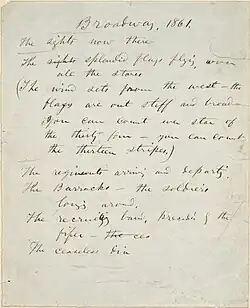 Broadway, 1861.
The sights now there
The splendid flags flying over
all the stores
(The wind sets from the west — the
flags are out stiff and broad —
you can count every star of
the thirty-four — you can count
the thirteen stripes.)
The regiments arriving and departing,
The Barracks — the soldiers
lounging around,
The recruiting band, preceded by the
fifer — the ces
The ceaseless din